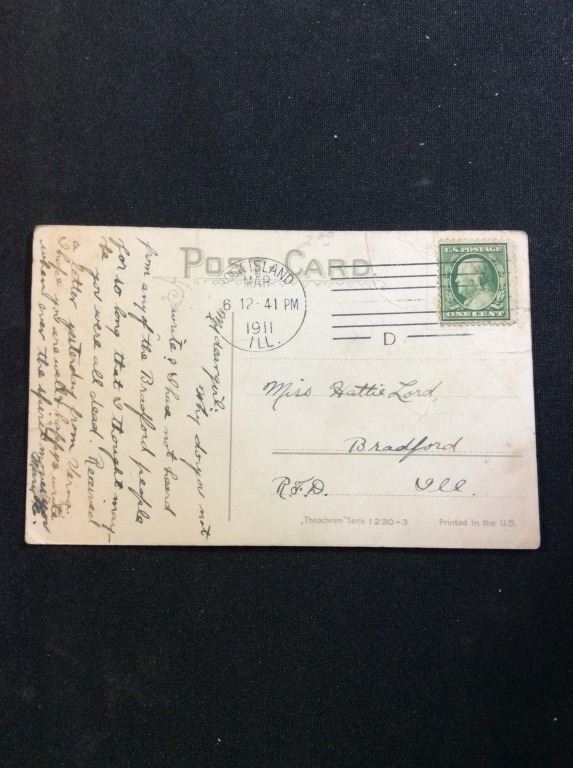 POST CARD
ROCK ISLAND
MAR
6 12-41 PM
1911
ILL.
D
U.S. POSTAGE
ONE CENT
My dear girl:
Why do you not
write? I have not heard
from any of the Bradford people
for so long that I thought may-
be you were all dead. Received
a letter yesterday from Verna
I hope you are well & happy. Write
when ever the spirit moves you
Miss Hattie Lord,
Bradford
R.F.D. Ill.
"Theochrom" Serie 1230-3
Printed in the U.S.